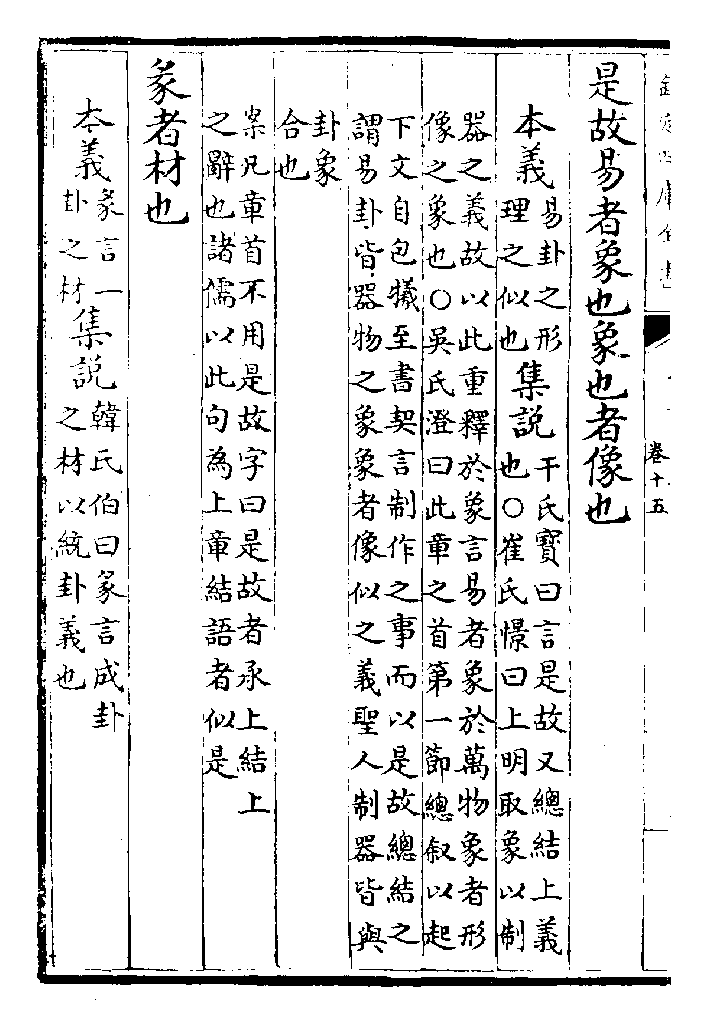 卷十五
是故易者象也象也者像也
本義易卦之形
理之似也
集說干氏寶曰言是故又總結上義
也○崔氏憬曰上明取象以制
器之義故以此重釋於象言易者象於萬物象者形
像之象也○吳氏澄曰此章之首第一節總叙以起
下文自包犧至書契言制作之事而以是故總結之
謂易卦皆器物之象象者像似之義聖人制器皆與
卦象
合也
案凡章首不用是故字曰是故者承上結上
之辭也諸儒以此句為上章結語者似是
彖者材也
本義彖言一
卦之材
集說韓氏伯曰彖言成卦
之材以統卦義也